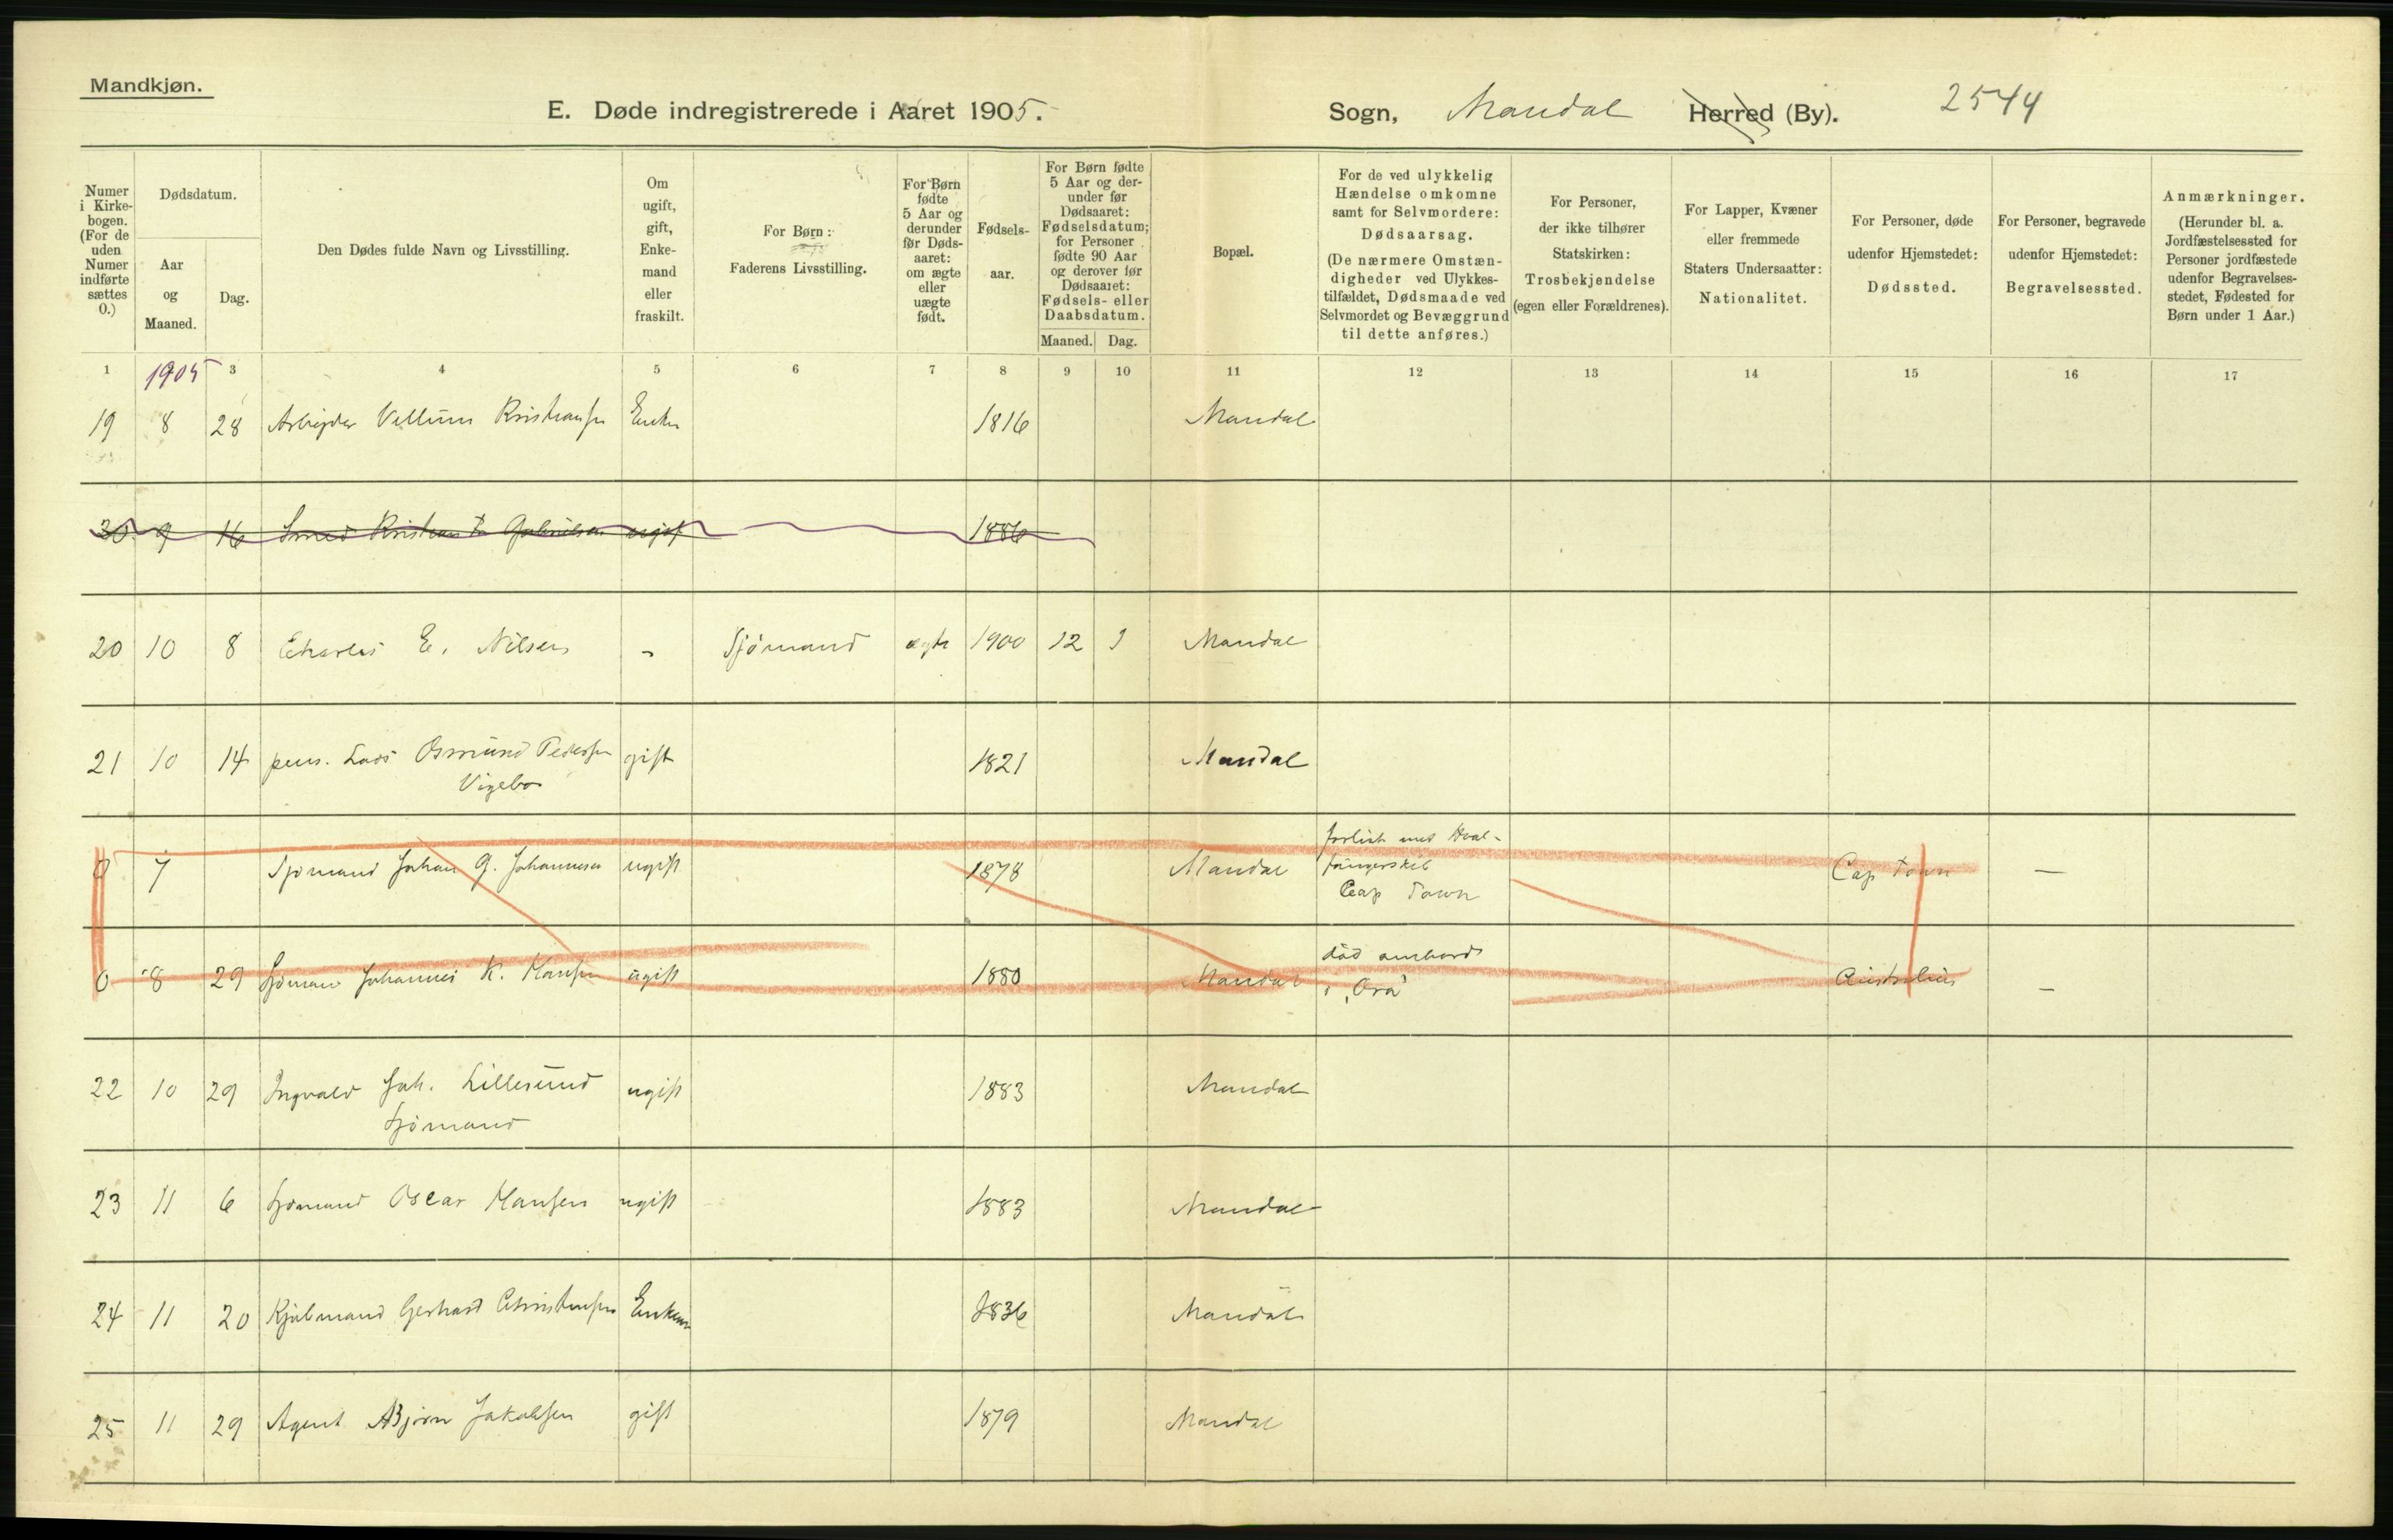 Mandkjøn.
E. Døde indregistrerede i Aaret 1905.
Sogn, Mandal Herred (By).
2544
Numer i Kirkebogen. (For de uden Numer indførte sættes 0.)
Dødsdatum.
Aar og Maaned.
Dag.
Den Dødes fulde Navn og Livsstilling.
Om ugift, gift, Enkemand eller fraskilt.
For Børn: Faderens Livsstilling.
For Børn fødte 5 Aar og derunder før Dødsaaret: om ægte eller uægte født.
Fødselsaar.
For Børn fødte 5 Aar og derunder før Dødsaaret: Fødselsdatum; for Personer fødte 90 Aar og derover før Dødsaaret: Fødsels- eller Daabsdatum.
Maaned. Dag.
Bopæl.
For de ved ulykkelig Hændelse omkomne samt for Selvmordere: Dødsaarsag. (De nærmere Omstændigheder ved Ulykkestilfældet, Dødsmaade ved Selvmordet og Bevæggrund til dette anføres.)
For Personer, der ikke tilhører Statskirken: Trosbekjendelse (egen eller Forældrenes).
For Lapper, Kvæner eller fremmede Staters Undersaatter: Nationalitet.
For Personer, døde udenfor Hjemstedet: Dødssted.
For Personer, begravede udenfor Hjemstedet: Begravelsessted.
Anmærkninger. (Herunder bl. a. Jordfæstelsessted for Personer jordfæstede udenfor Begravelsesstedet, Fødested for Børn under 1 Aar.)
1 1905 3 4 5 6 7 8 9 10 11 12 13 14 15 16 17
19 8 28 Arbejder Vellum Kristiansen Enkm 1816 Mandal
30 9 16 Smed Kristian Gabrielsen ugift 1886
20 10 8 Charles E. Nilsen - Sjømand ægte 1900 12 Mandal
21 10 14 pens. Lods Osmund Pedersen gift 1821 Mandal
Vigebo
forlist med Hval-
0 7 Sjømand Johan G. Johannesen ugift 1878 Mandal fangerskib Cap Town —
Cap Town
død ombord
0 8 29 Sjømand Johannes K. Hansen ugift 1880 Mandal i "Ora" Australien —
22 10 29 Ingvald Joh. Lillesund ugift 1883 Mandal
Sjømand
23 11 6 Sjømand Oscar Hansen ugift 1883 Mandal
24 11 20 Kjøbmand Gerhard Christensen Enkem 1836 Mandal
25 11 29 Agent Bjørn Jakobsen gift 1879 Mandal